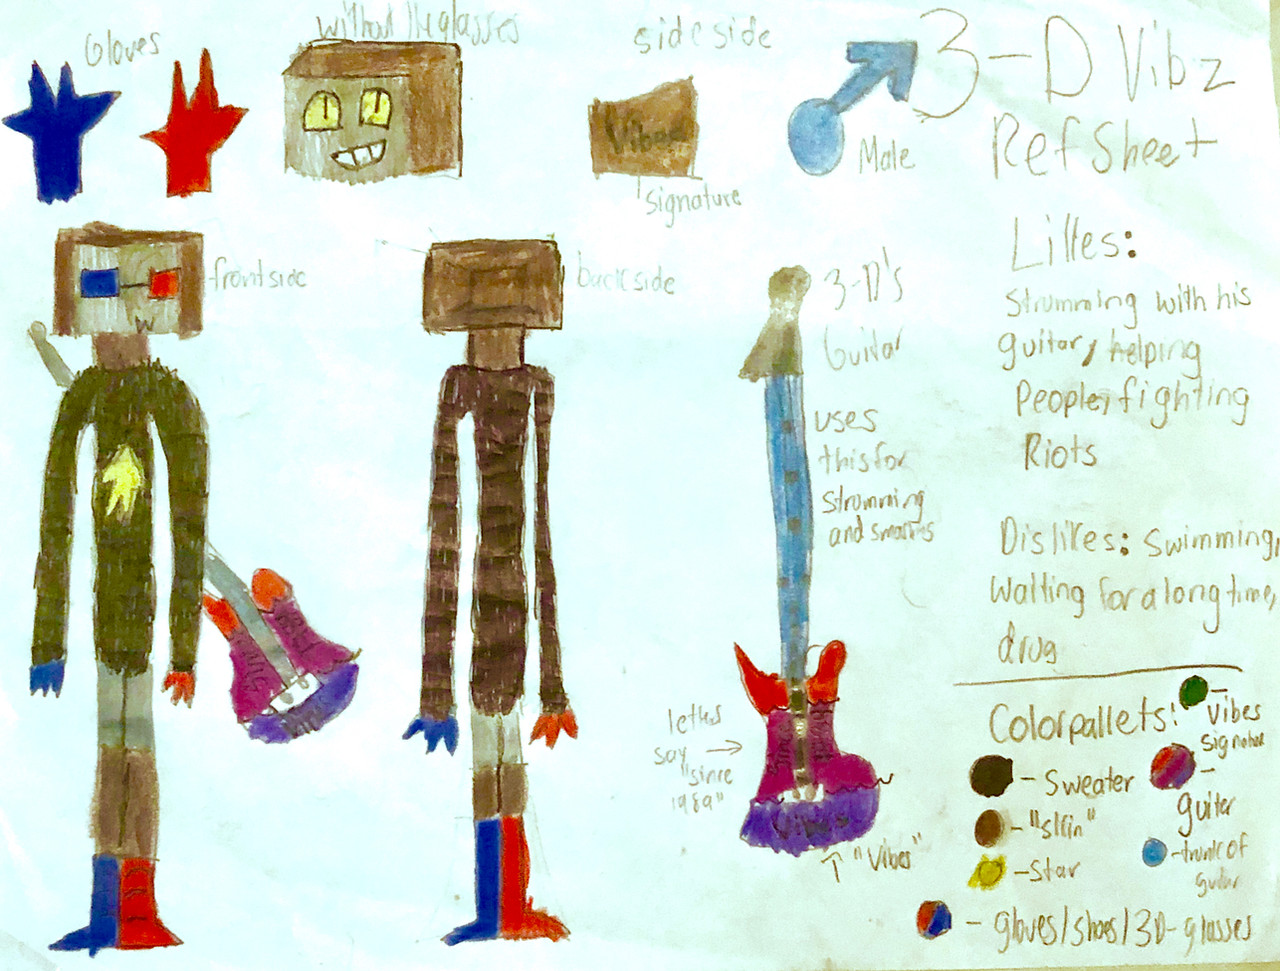 Gloves
without the glasses
side side
Vibes
signature
Male
3-D Vibz
Ref Sheet
front side
back side
3-D's
Guitar
uses
this for
strumming
and smashes
letters
say
"since
1989"
"Vibes"
Likes:
Strumming with his
guitar, helping
People, fighting
Riots
Dislikes: Swimming,
Waiting for a long time,
drug
Color pallets:
- Vibes
signature
- Sweater
- guitar
- "skin"
- trunk of
guitar
- Star
- gloves/shoes/3D-glasses